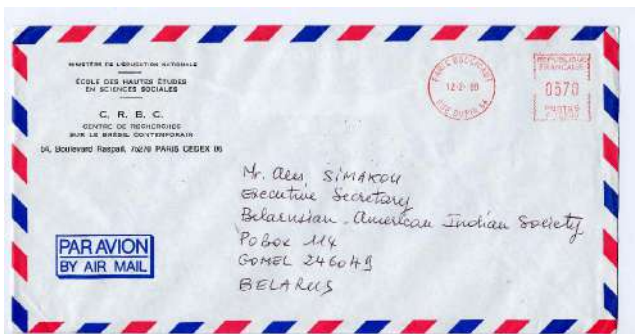 MINISTÈRE DE L'ÉDUCATION NATIONALE
ÉCOLE DES HAUTES ÉTUDES
EN SCIENCES SOCIALES
C. R. B. C.
CENTRE DE RECHERCHES
SUR LE BRÉSIL CONTEMPORAIN
54, Boulevard Raspail, 75270 PARIS CEDEX 06
REPUBLIQUE
FRANCAISE
0670
POSTES
12-2-
Mr. Ales SIMAKOU
Executive Secretary
Belarusian-American Indian Society
PoBox 114
GOMEL 246049
BELARUS
PAR AVION
BY AIR MAIL